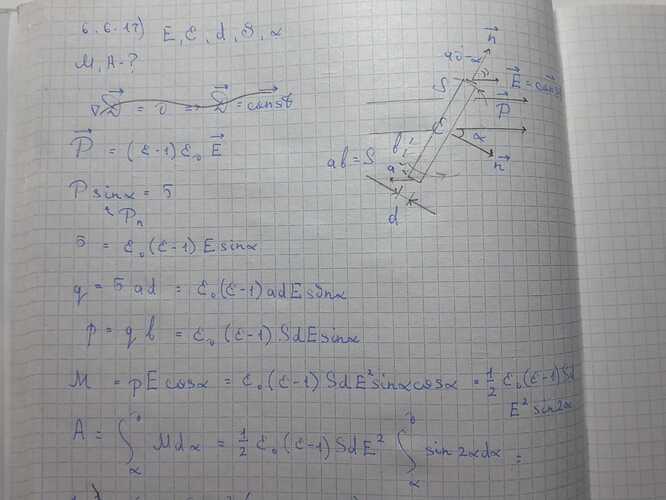 6.6.17) E, ε, d, S, α
M, A-?
∇D⃗ = 0 ⇒ D⃗ = const
P⃗ = (ε-1)ε₀ E⃗
P sinα = σ
Pₙ
σ = ε₀(ε-1) E sinα
q = σ ad = ε₀(ε-1) ad E sinα
p = q b = ε₀(ε-1) S d E sinα
M = pE cosα = ε₀(ε-1) S d E² sinα cosα = 1/2 ε₀(ε-1) S d
E² sin 2α
A = ∫ M dα = 1/2 ε₀(ε-1) S d E² ∫ sin 2α dα =
α
α
n⃗
S
E⃗ = const
P⃗
ε
α
n⃗
ab = S
b
a
d